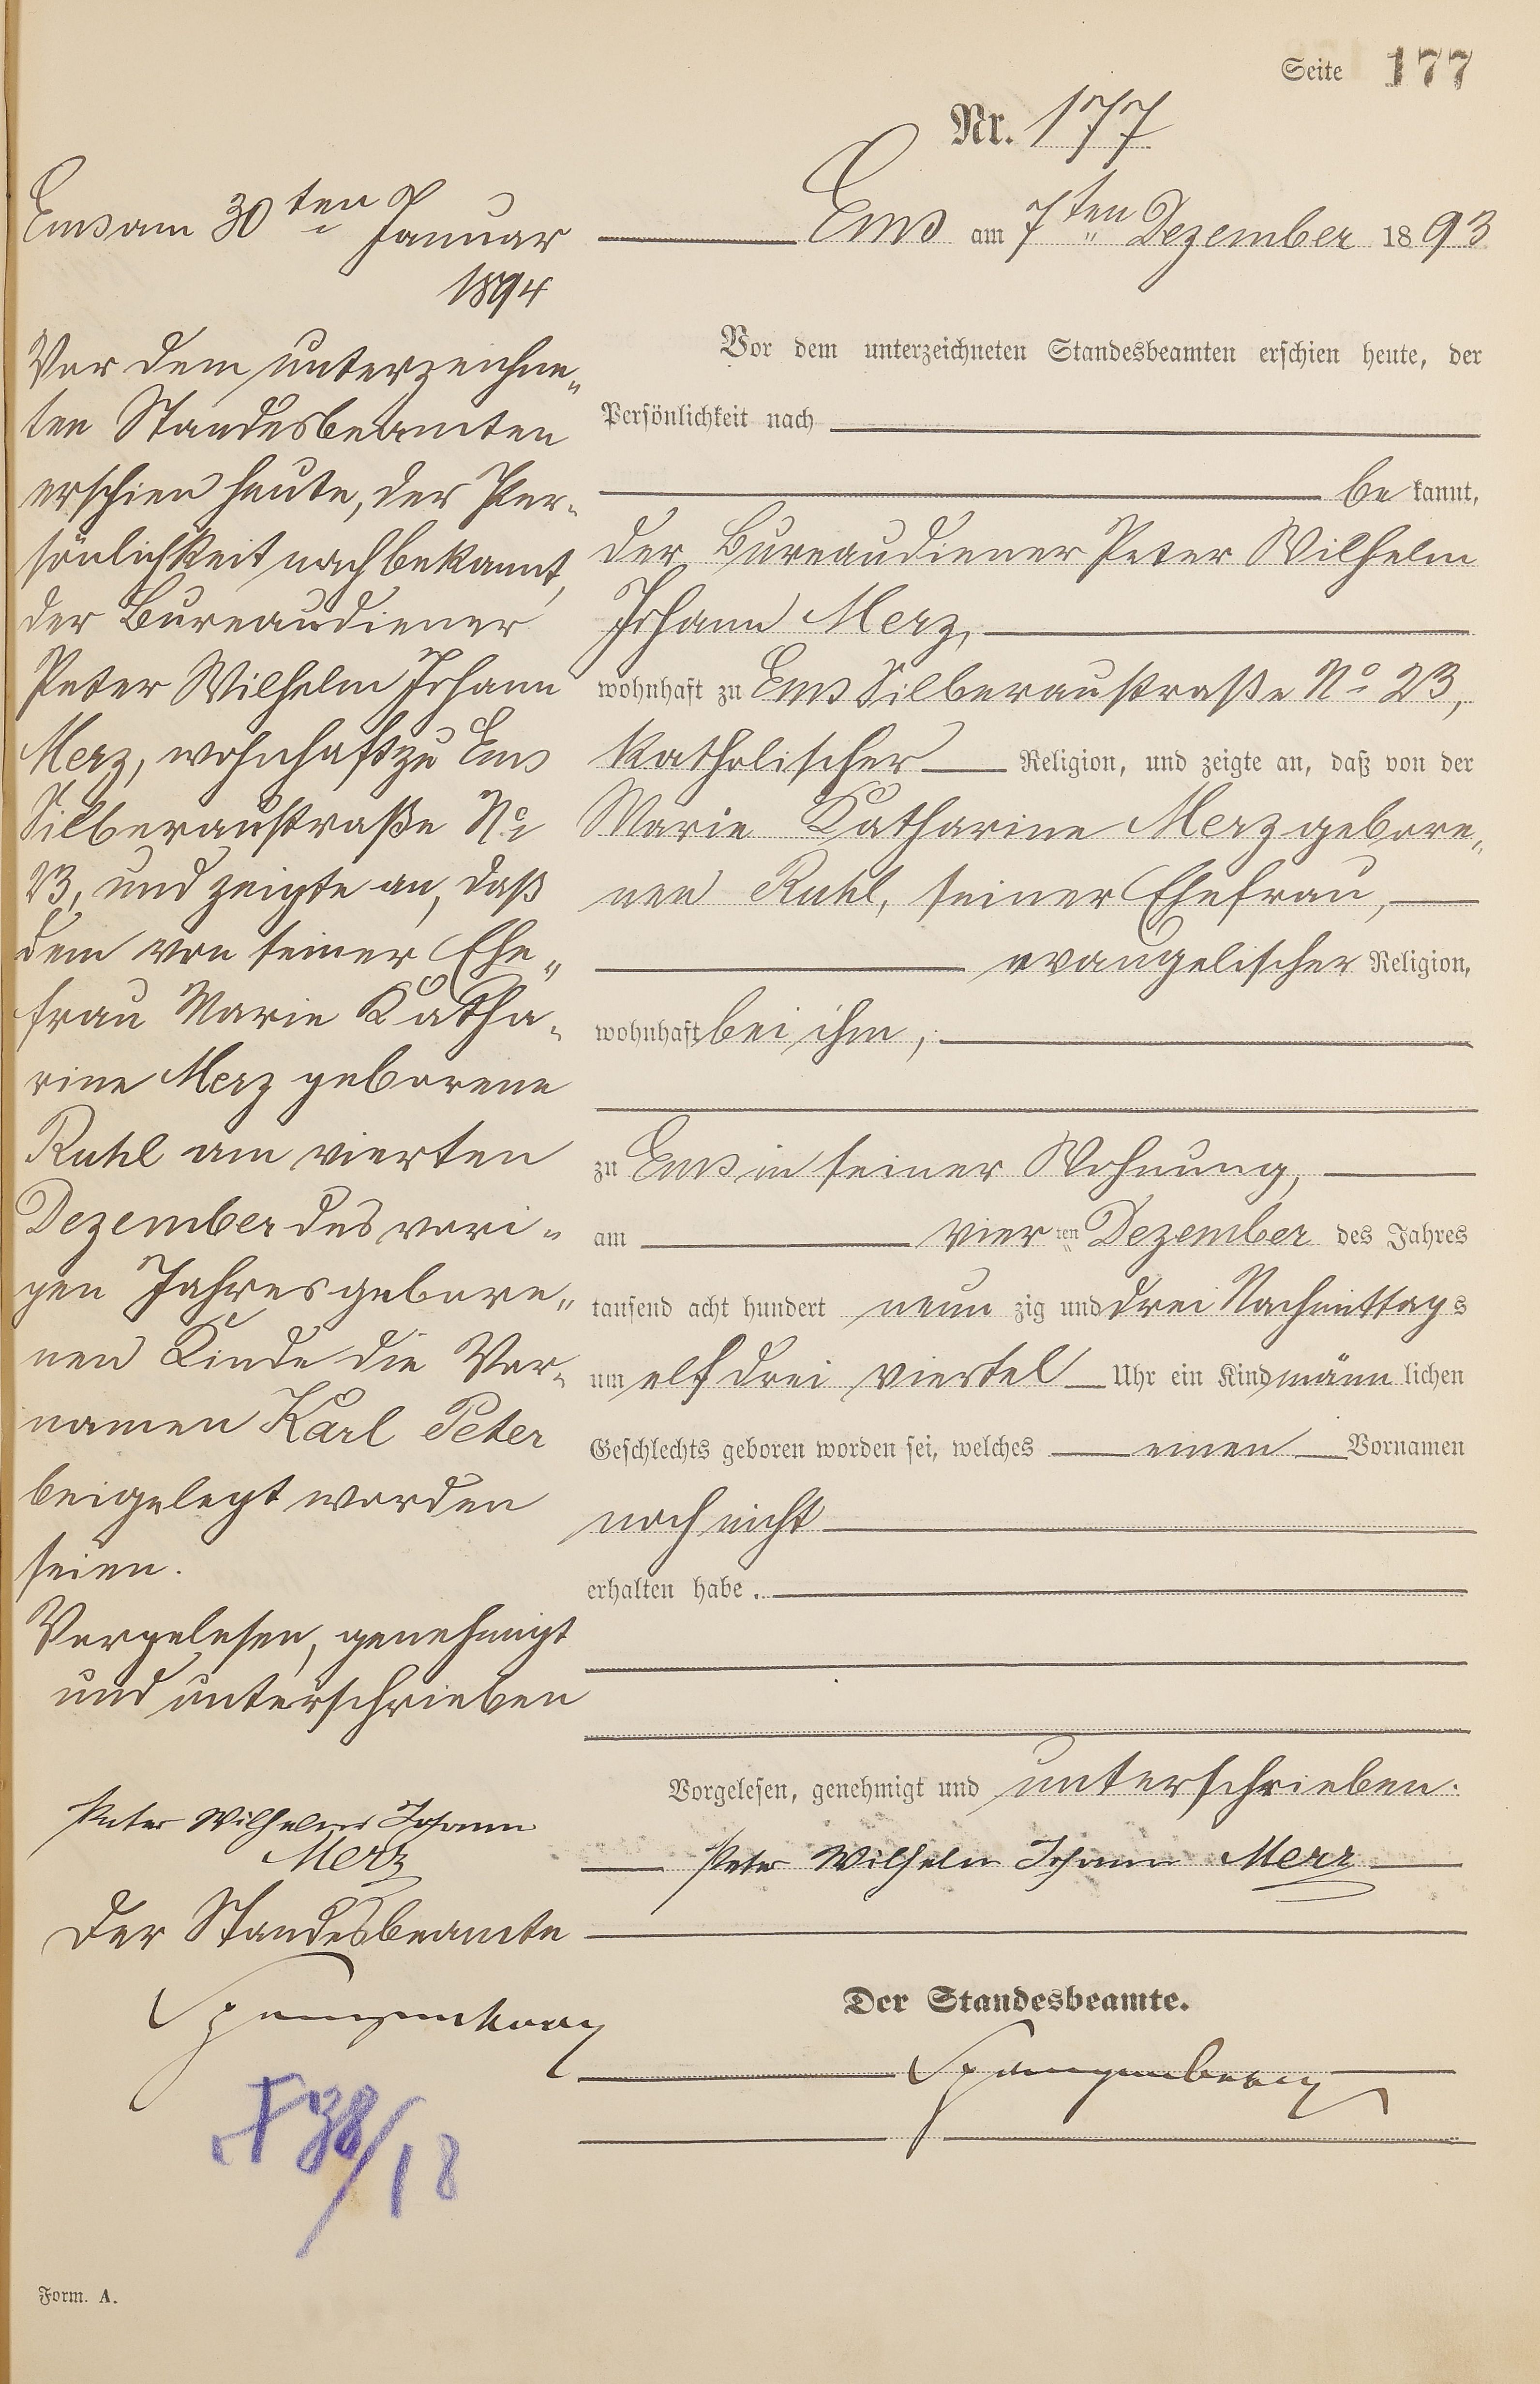 Seite 177
Nr. 177
Ems am 7ten Dezember 1893
Vor dem unterzeichneten Standesbeamten erschien heute, der
Persönlichkeit nach
be kannt,
der Bureaudiener Peter Wilhelm
Johann Merz,
wohnhaft zu Ems Silberaustraße No 23,
katholischer Religion, und zeigte an, daß von der
Marie Katharine Merz gebore„
nen Ruhl, seiner Ehefrau,
evangelischer Religion,
wohnhaft bei ihm,
zu Ems in seiner Wohnung,
am vier ten Dezember des Jahres
tausend acht hundert neun zig und drei Nachmittags
um elf drei viertel Uhr ein Kind männ lichen
Geschlechts geboren worden sei, welches einen Vornamen
noch nicht
erhalten habe.
Vorgelesen, genehmigt und unterschrieben.
Peter Wilhelm Johann Merz
Der Standesbeamte.
Spangenberg
Ems am 30ten Januar
1894
Vor dem unterzeichne„
ten Standesbeamten
erschien heute, der Per„
sönlichkeit nach bekannt,
der Bureaudiener
Peter Wilhelm Johann
Merz, wohnhaft zu Ems
Silberaustraße No
23, und zeigte an, daß
dem von seiner Ehe„
frau Marie Katha„
rine Merz geborene
Ruhl am vierten
Dezember des vori„
gen Jahres gebore„
nen Kinde die Vor„
namen Karl Peter
beigelegt worden
seien.
Vorgelesen, genehmigt
und unterschrieben
Peter Wilhelm Johann
Merz
Der Standesbeamte
Spangenberg
Form. A.